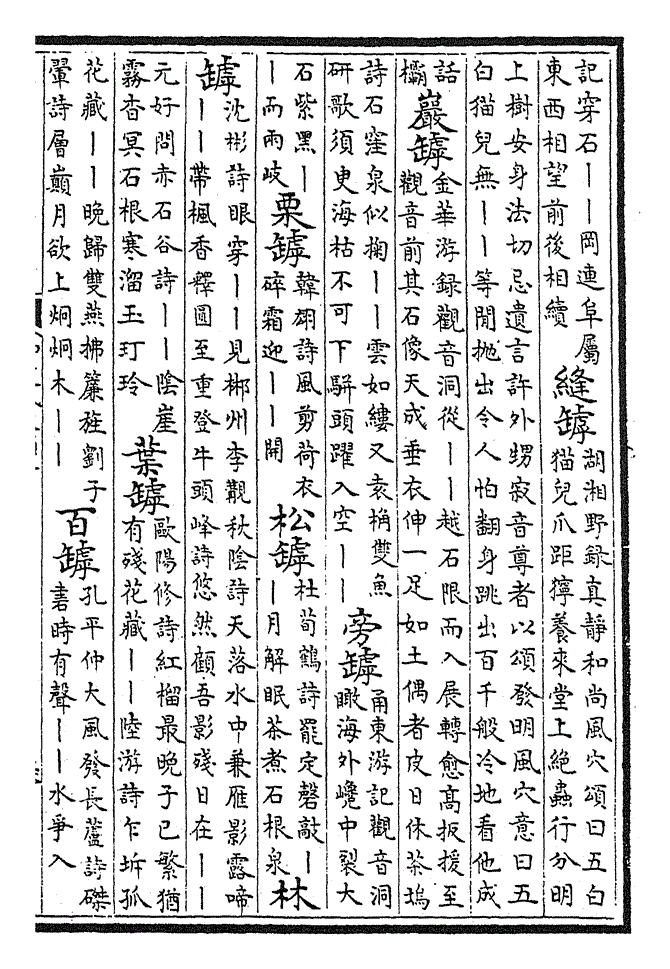 記穿石｜｜岡連阜屬
東西相望前後相續
縫罅
胡湘野録真静和尚風穴頌曰五白
猫兒爪距獰養來堂上絶蟲行分明
上樹安身法切忌遺言許外甥寂音尊者以頌發明風穴意曰五
白猫兒無｜｜等閒抛出令人怕翻身跳出百千般冷地看他成
話
欛
巖罅
金華游録觀音洞從｜｜越石限而入展轉愈髙扳援至
觀音前其石像天成垂衣伸一足如土偶者皮日休茶塢
詩石窪泉似掬｜｜雲如縷又袁桷雙魚
研歌須叓海枯不可下駢頭躍入空｜｜
旁罅
甬東游記觀音洞
瞰海外巉中裂大
石紫黑｜
｜而兩岐
栗罅
韓翃詩風剪荷衣
碎霜迎｜｜開
松罅
杜荀鶴詩罷定磬敲｜
｜月解眠茶煮石根泉
林
罅
沈彬詩眼穿｜｜見郴州李覯秋陰詩天落水中兼雁影露啼
｜｜帶楓香釋圓至重登牛頭峰詩悠然顧吾影殘日在｜｜
元好問赤石谷詩｜｜陰崖
霧杳冥石根寒溜玉玎玲
葉罅
歐陽修詩紅榴最晚子已繁猶
有殘花藏｜｜陸游詩乍坼孤
花藏｜｜晚歸雙燕拂簾旌劉子
翬詩層巔月欲上炯炯木｜｜
百罅
孔平仲大風發長蘆詩磔
砉時有聲｜｜水爭入